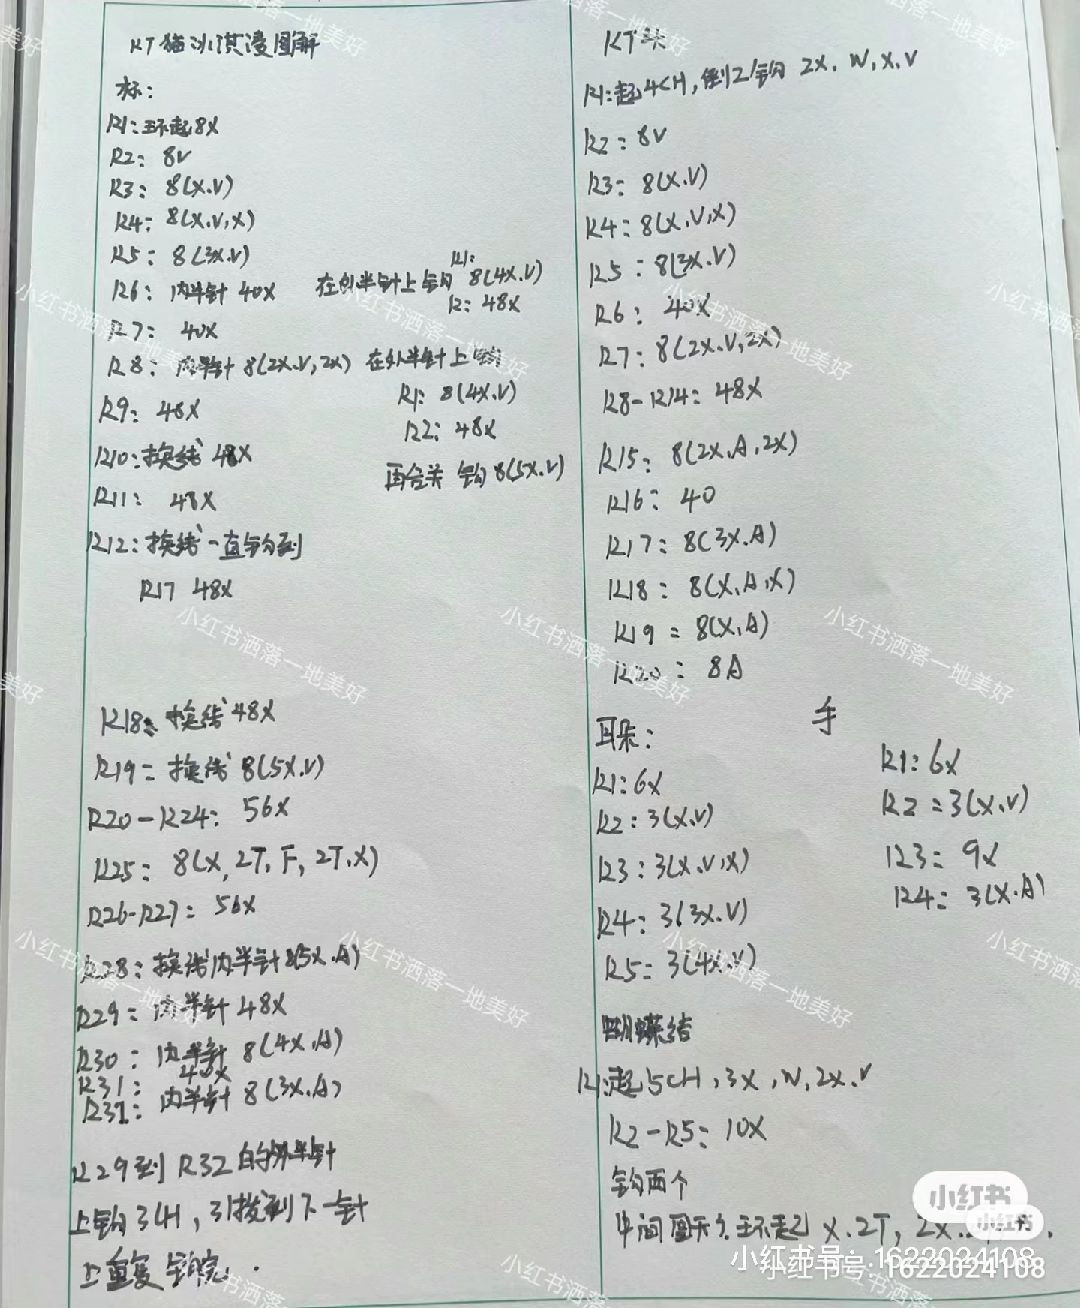 KT猫冰淇淩图解
杯：
R1：环起8X
R2：8V
R3：8(X.V)
R4：8(X,V,X)
R5：8(3X.V)
R6：内半针 40X 在外半针上钩 R1：8(4X.V)
R：48X
R7：40X
R8：内半针 8(2X.V,2X) 在外半针上钩
R1：8(4X.V)
R9：48X
R2：48X
R10：换线 48X
再合关 钩8(5X.V)
R11：48X
R12：换线一直钩到
R17 48X
R18：换线 48X
R19：换线 8(5X.V)
R20-R24：56X
R25：8(X,2T,F,2T.X)
R26-R27：56X
R28：换线内半针8(5X.A)
R29：内半针 48X
R30：内半针 8(4X.A)
R31：40X
R32：内半针 8(3X.A)
R29到R32的外半针
上钩3CH，引拔到下一针
上重复钩完．
KT头
R1：起4CH,倒2钩 2X.W,X.V
R2：8V
R3：8(X.V)
R4：8(X,V,X)
R5：8(3X.V)
R6：40X
R7：8(2X.V,2X)
R8-R14：48X
R15：8(2X,A,2X)
R16：40
R17：8(3X.A)
R18：8(X,A,X)
R19：8(X,A)
R20：8A
耳朵：
R1：6X
R2：3(X.V)
R3：3(X.V,X)
R4：3(3X.V)
R5：3(4X.V)
手
R1：6X
R2：3(X.V)
R3：9X
R4：3(X.A)
蝴蝶结
R1：起5CH,3X,W,2X.V
R2-R5：10X
钩两个
中间 环起 X.2T,2X
小红书
小红书
小红书号：1622024108
小红书号：1622024108
小红书洒落一地美好